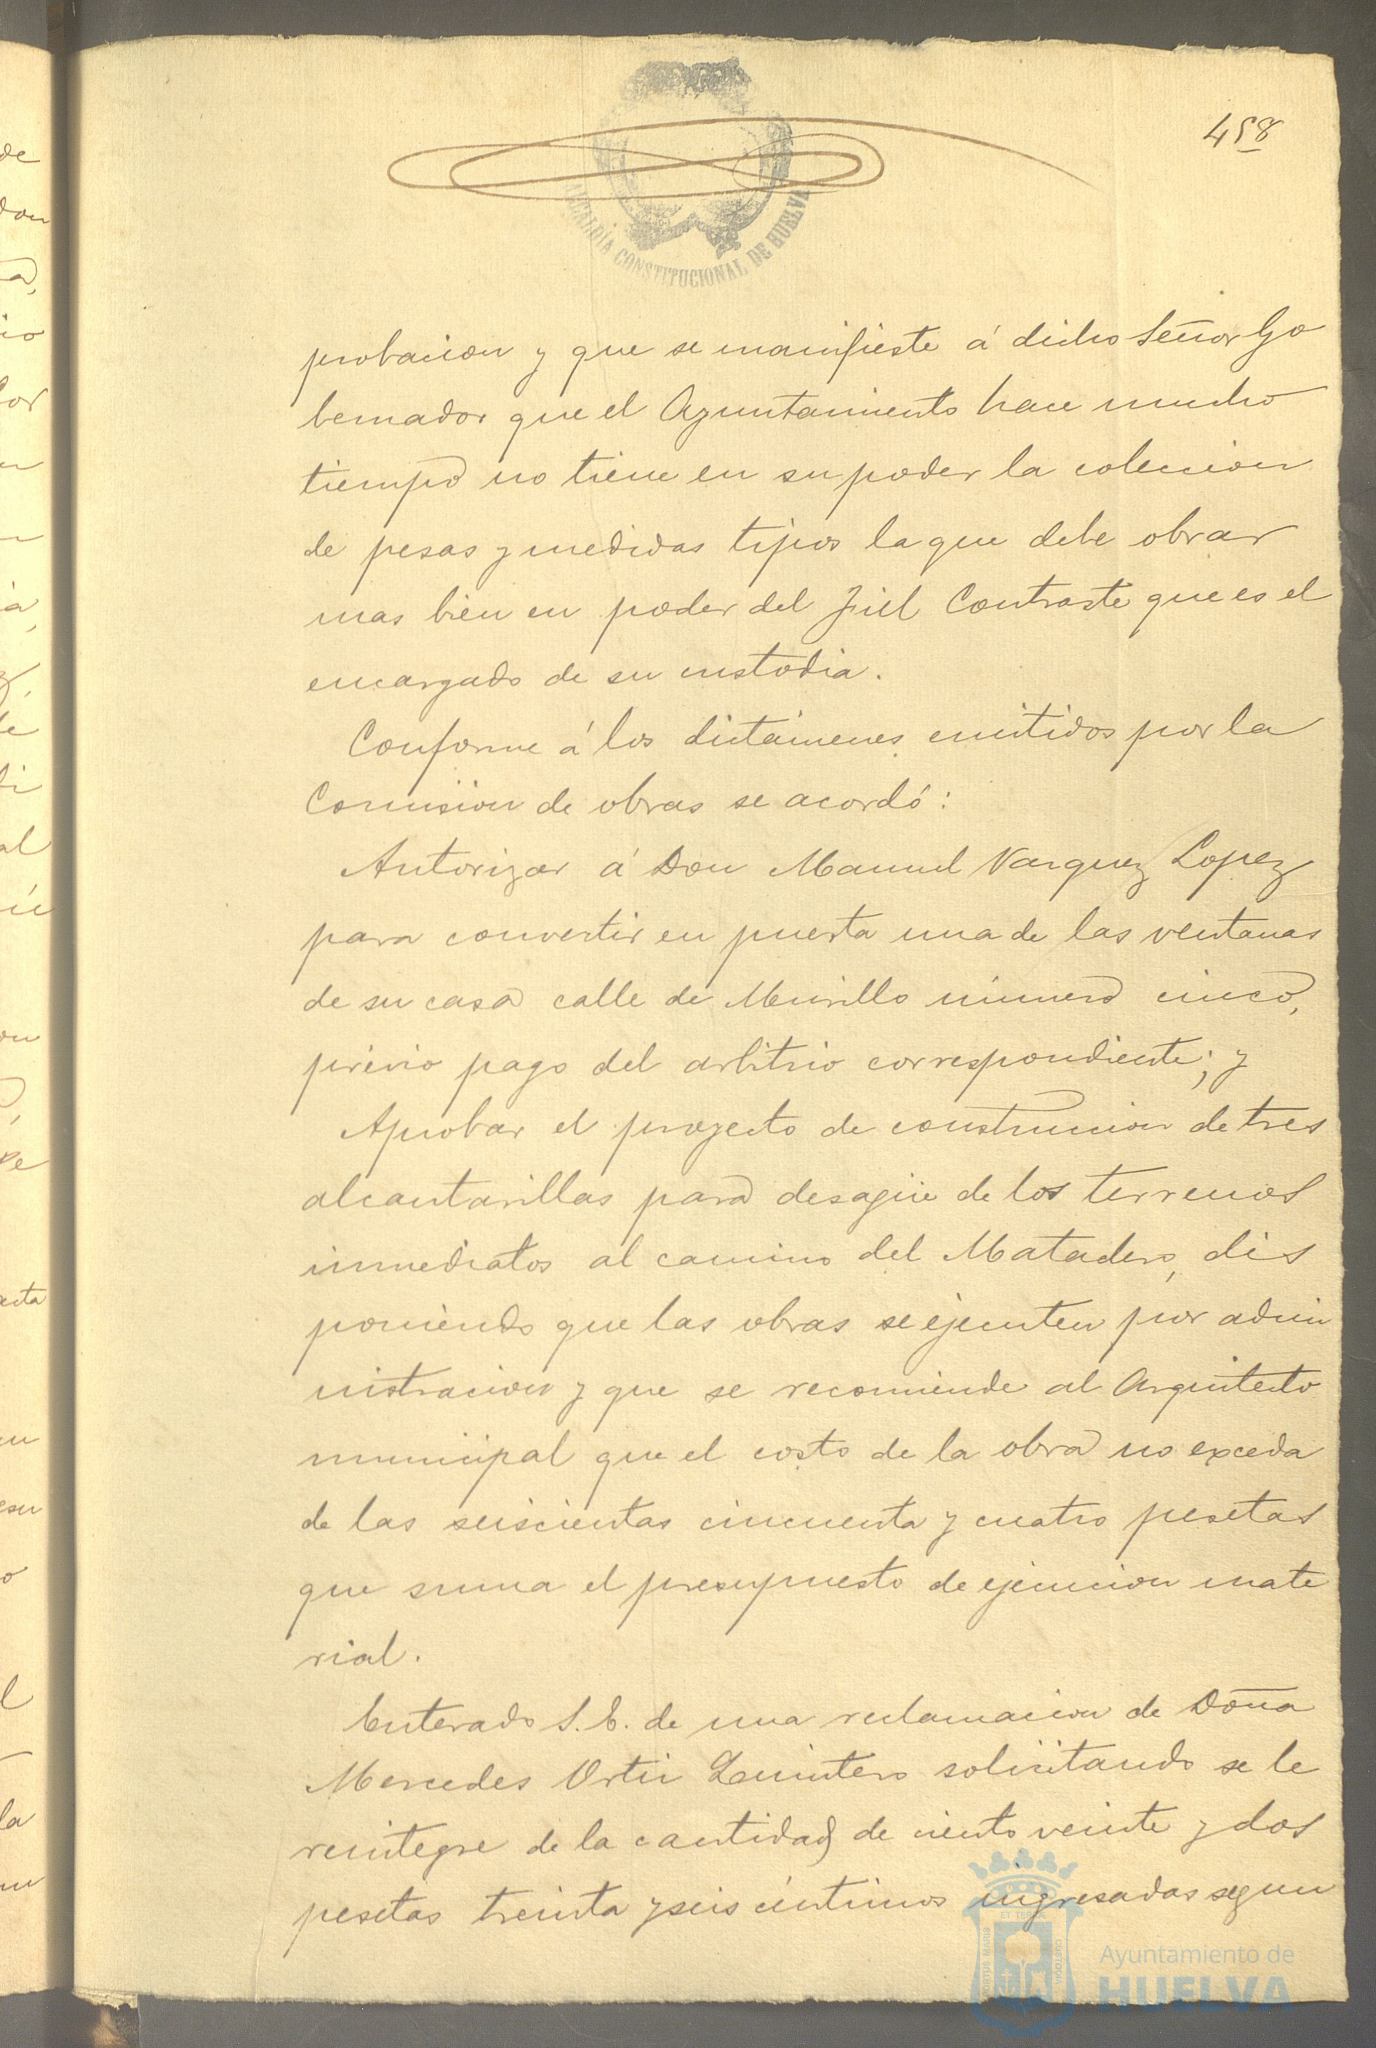 458
ALCALDÍA CONSTITUCIONAL DE HUELVA
probacion y que se manifieste á dicho Señor Go
bernador que el Ayuntamiento hace mucho
tiempo no tiene en su poder la coleccion
de pesas y medidas tipos la que debe obrar
mas bien en poder del Fiel Contraste que es el
encargado de su custodia.
Conforme á los dictámenes emitidos por la
Comision de obras se acordó:
Autorizar á Don Manuel Vazquez Lopez
para convertir en puerta una de las ventanas
de su casa calle de Murillo número cinco,
previo pago del arbitrio correspondiente; y
Aprobar el proyecto de construccion de tres
alcantarillas para desagüe de los terrenos
inmediatos al camino del Matadero, dis
poniendo que las obras se ejecuten por admi
nistracion y que se recomiende al Arquitecto
municipal que el costo de la obra no exceda
de las seiscientas cincuenta y cuatro pesetas
que suma el presupuesto de ejecucion mate
rial.
Enterado S. E. de una reclamacion de Doña
Mercedes Ortiz Quintero solicitando se le
reintegre de la cantidad de ciento veinte y dos
pesetas treinta y seis céntimos ingresadas segun
Ayuntamiento de
HUELVA